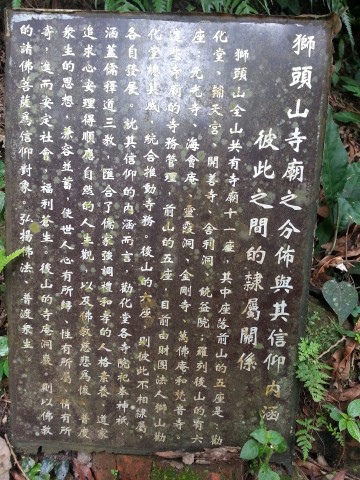 獅頭山寺廟之分佈與其信仰內涵
彼此之間的隸屬關係
獅頭山全山共有寺廟十一座，其中座落前山的五座是：勸
化堂、輔天宮、開善寺、舍利洞、饒益院；羅列後山的有六
座：元光寺、海會庵、靈霞洞、金剛寺、萬佛庵和梵音寺。
這些寺廟的寺務管理，前山的五座，目前由財團法人獅山勸
化堂總其成，統合推動寺務。後山的六座，則彼此不相隸屬
各自發展。就其信仰的內涵而言，勸化堂各寺院祀奉神祇，
涵蓋儒釋道三教，匯合了儒家強調禮和等的人格素養、道家
追求心安理得順應自然的人生觀，以及佛教慈悲為懷，普渡
眾生的思想，兼容並蓄，使世人心有所歸，性有所屬，情有所
寄，進而安定社會，福利蒼生。後山的寺庵洞巖，則以佛教
的諸佛菩薩為信仰對象。弘揚佛法，普渡眾生